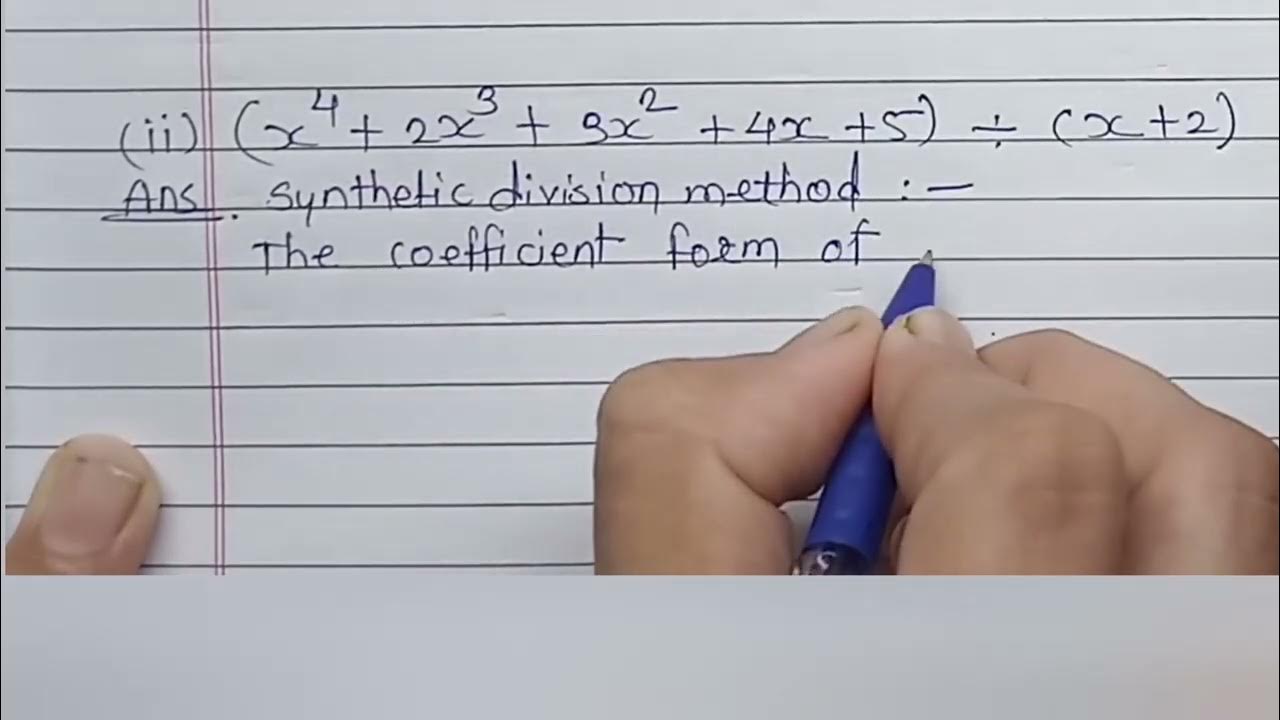 (ii) (x⁴ + 2x³ + 3x² + 4x + 5) ÷ (x + 2)
Ans. Synthetic division method : —
The coefficient form of